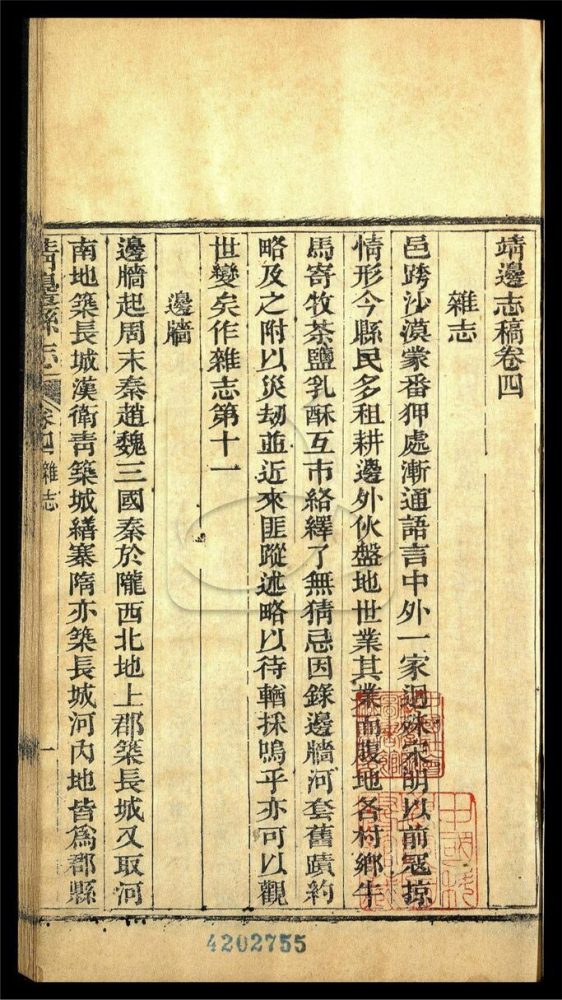 靖邊志稿卷四
雜志
邑跨沙漠蒙番狎處漸通語言中外一家迥殊宋明以前寇掠
情形今縣民多租耕邊外伙盤地世業其業而腹地各村鄉牛
馬寄牧茶鹽乳酥互市絡繹了無猜忌因錄邊牆河套舊蹟約
略及之附以災刼並近來匪蹤述略以待輶採嗚乎亦可以觀
世變矣作雜志第十一
邊牆
邊牆起周末秦趙魏三國秦於隴西北地上郡築長城又取河
南地築長城漢衛靑築城繕塞隋亦築長城河內地皆爲郡縣
靖邊縣志 卷四 雜志
一
4202755